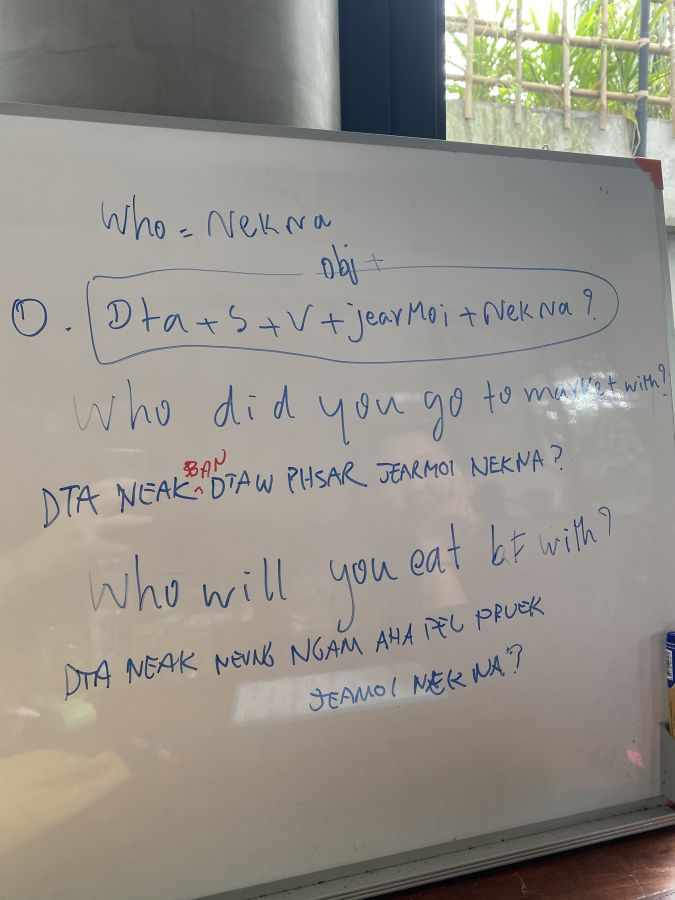 Who = NekNa
obj +
①. Dta + S + V + jearMoi + NekNa?
Who did you go to market with?
BAN
DTA NEAK ^ DTAW PHSAR JEARMOI NEKNA?
Who will you eat bF with?
DTA NEAK NEUNG NGAM AHA PEL PRUEK
JEAMOI NEK NA?